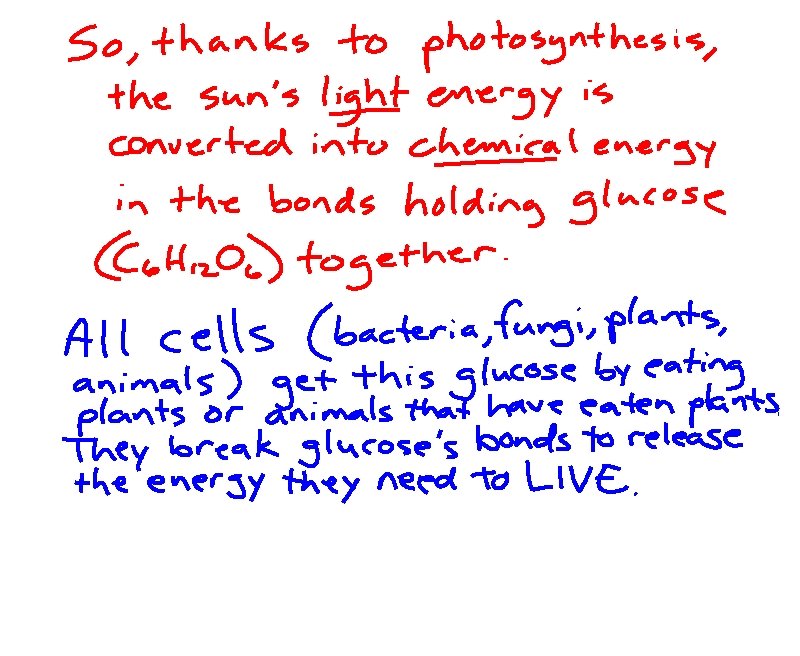 So, thanks to photosynthesis,
the sun's light energy is
converted into chemical energy
in the bonds holding glucose
(C₆H₁₂O₆) together.
All cells (bacteria, fungi, plants,
animals) get this glucose by eating
plants or animals that have eaten plants
They break glucose's bonds to release
the energy they need to LIVE.